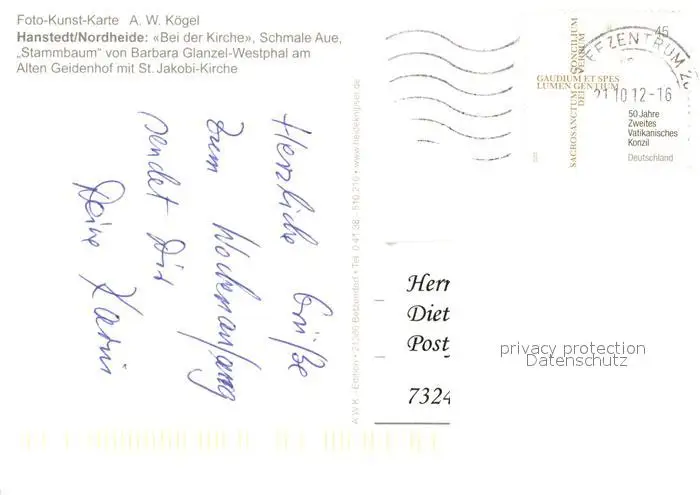 Foto-Kunst-Karte A. W. Kögel
Hanstedt/Nordheide: «Bei der Kirche», Schmale Aue,
„Stammbaum" von Barbara Glanzel-Westphal am
Alten Geidenhof mit St. Jakobi-Kirche
Herzliche Grüße
zum Wochenanfang
sendet Dir
Deine Karin
A.W.K.-Edition • 21386 Betzendorf • Tel. 0 41 38 - 510 210 • www.heideknipser.de
45
SACROSANCTUM CONCILIUM
DEI VERBUM
GAUDIUM ET SPES
LUMEN GENTIUM
50 Jahre
Zweites
Vatikanisches
Konzil
Deutschland
EFZENTRUM
21.10.12-16
Herr
Diet
Post
7324
privacy protection
Datenschutz